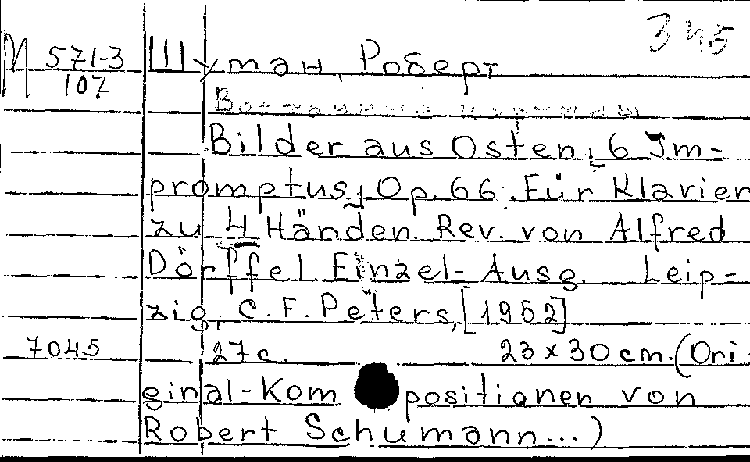 345
М 571-3
107
Шуман, Роберт
Восточные картины
Bilder aus Osten, 6 Im-
promptus, Op. 66. Für Klavier
zu 4 Händen Rev. von Alfred
Dörffel Einzel-Ausg. Leip-
zig, C. F. Peters, [1952]
7045 27 с. 23 x 30 cm. (Ori
ginal-Kom positionen von
Robert Schumann...)